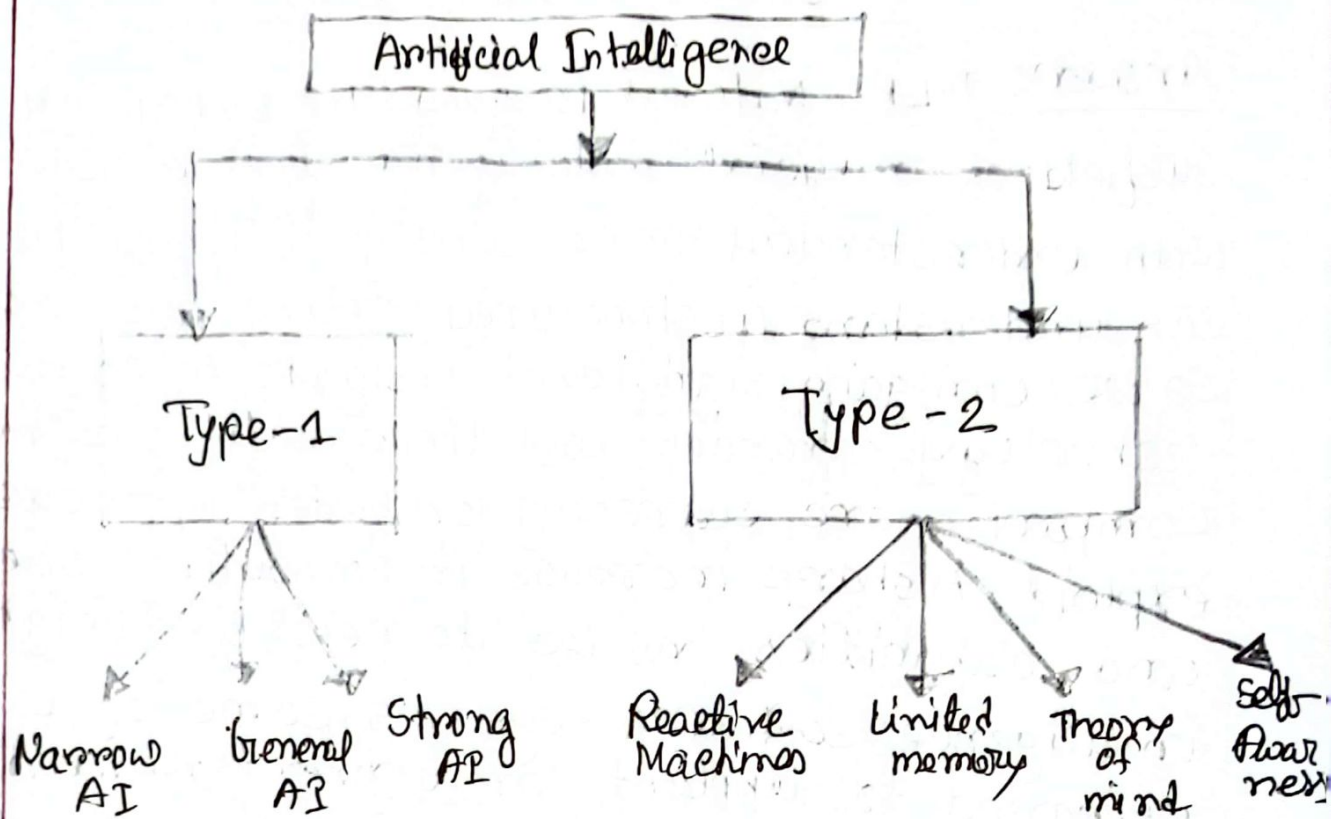 Artificial Intelligence
Type-1
Type-2
Narrow
AI
General
AI
Strong
AI
Reactive
Machines
Limited
memory
Theory
of
mind
Self-
Awar
ness